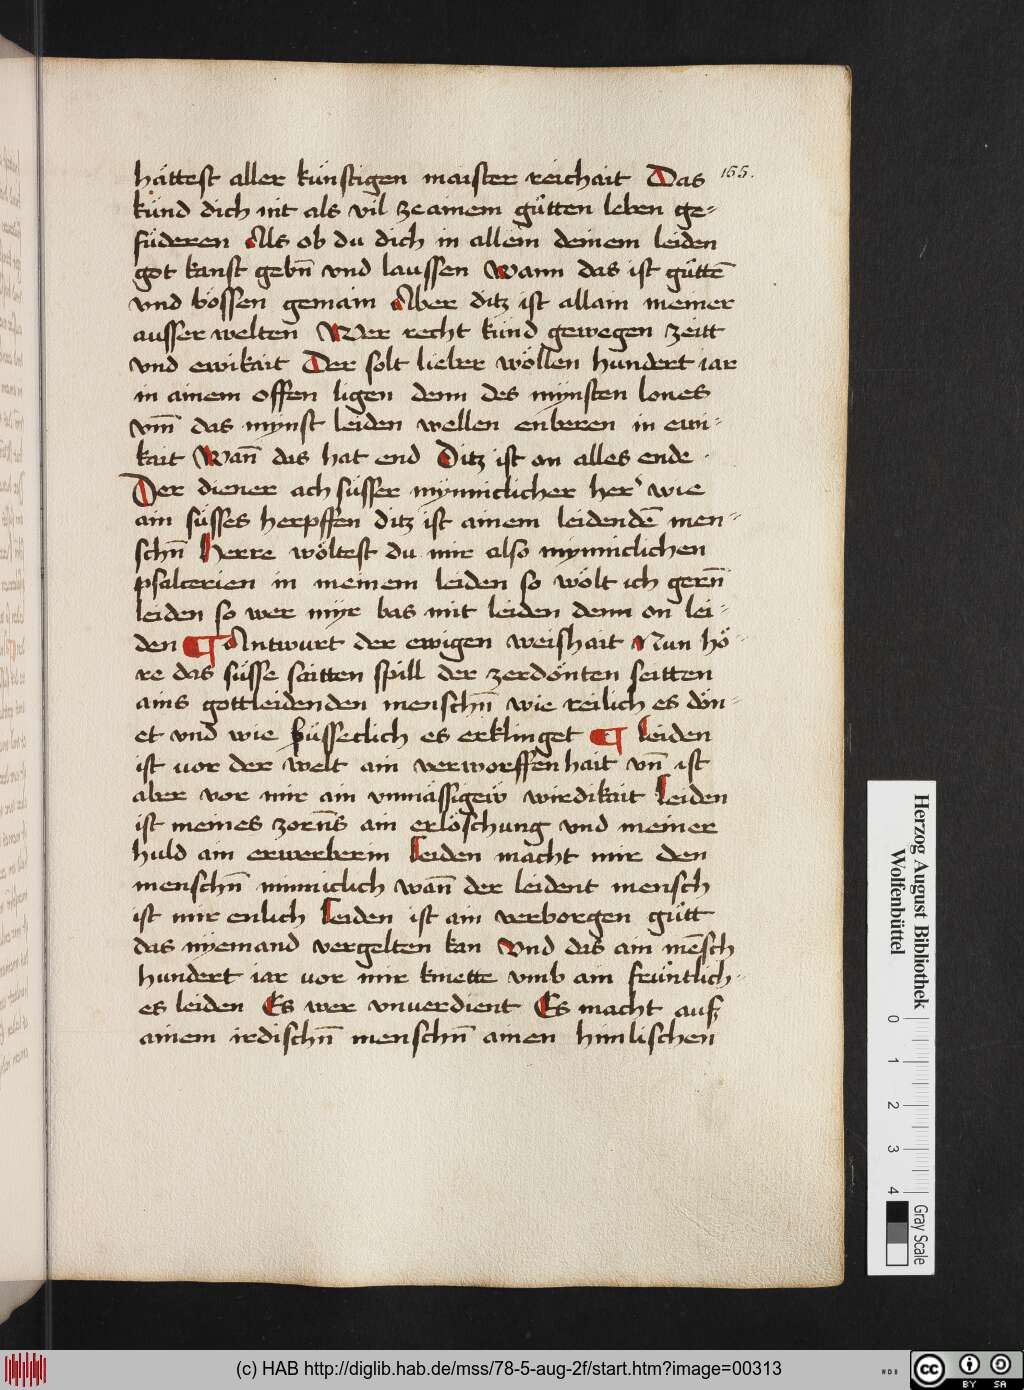 hättest aller künstigen maister reichait Das
155.
künd dich nit als vil ze ainem gůtten leben ge-
füderen Als ob du dich in allem deinem leiden
got kanst gebn̄ vnd laussen wann das ist gůttē
vnd bössen gemain Aber ditz ist allain meiner
ausserwelten Wer recht künd gewegen zeitt
vnd ewikait Der solt lieber wöllen hundert iar
in ainem offen ligen denn des mynsten lones
vm̄ das mynst leiden wellen enberen in ewi-
kait Wan̄ das hat end Ditz ist on alles ende
Der diener ach süsser mynniclicher her wie
ain süsses herpffen ditz ist ainem leidendē men-
schn̄ Herre wöltest du mir also mynniclichen
psalterien in meinem leiden so wölt ich gern̄
leiden so wer myr bas mit leiden denn on lei-
den ¶ Antwurt der ewigen weishait Nun hö-
re das süsse saitten spill der zerdönten seitten
ains gottleidenden menschn̄ wie reilich es dön-
et vnd wie süsseclich es erklinget ¶ Leiden
ist vor der welt ain verworffenhait vn̄ ist
aber vor mir ain vnmässigew wirdikait Leiden
ist meines zorn̄s ain erlöschung vnd meiner
huld ain erwerberin Leiden macht mir den
menschn̄ minniclich wan̄ der leident mensch
ist mir enlich Leiden ist ain verborgen gůtt
das nyemand vergelten kan Vnd das ain mēsch
hundert iar vor mir knette vmb ain frůntlich-
es leiden Es wer vnuerdient Es macht aus
ainem irdischn̄ menschn̄ ainen himlischen
Herzog August Bibliothek
Wolfenbüttel
0 1 2 3 4
Gray Scale
(c) HAB http://diglib.hab.de/mss/78-5-aug-2f/start.htm?image=00313
cc BY SA